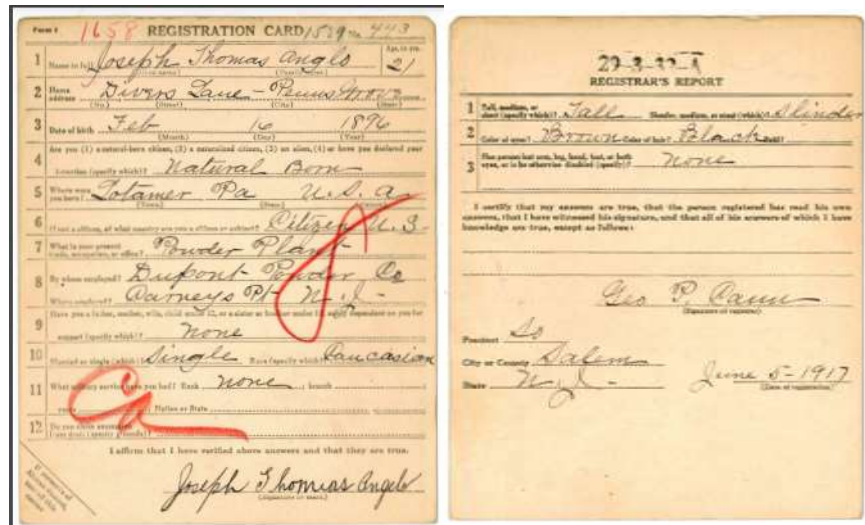 Form 1 1658 REGISTRATION CARD 1529 No. 443
1 Name in full Joseph Thomas Anglo Age, in yrs. 21
(Given name) (Family name)
2 Home address Divers Lane - Penns Grove
(No.) (Street) (City) (State)
3 Date of birth Feb 16 1896
(Month) (Day) (Year)
4 Are you (1) a natural-born citizen, (2) a naturalized citizen, (3) an alien, (4) or have you declared your
intention (specify which)? Natural Born
5 Where were you born? Pa U.S.A.
(Town) (State) (Nation)
6 If not a citizen, of what country are you a citizen or subject? Citizen U.S-
7 What is your present trade, occupation, or office? Powder Plant
8 By whom employed? Dupont Powder Co
Where employed? Carneys Pt N.J-
9 Have you a father, mother, wife, child under 12, or a sister or brother under 12, solely dependent on you for
support (specify which)? None
10 Married or single (which)? Single Race (specify which)? Caucasian
11 What military service have you had? Rank none ; branch
years ; Nation or State
12 Do you claim exemption
from draft (specify grounds)?
I affirm that I have verified above answers and that they are true.
Joseph Thomas Angelo
(Signature or mark)
REGISTRAR'S REPORT
1 Tall, medium, or short (specify which)? Tall Slender, medium, or stout (which)? Slinder
2 Color of eyes? Brown Color of hair? Black Bald?
3 Has person lost arm, leg, hand, foot, or both
eyes, or is he otherwise disabled (specify)? None
I certify that my answers are true, that the person registered has read his own
answers, that I have witnessed his signature, and that all of his answers of which I have
knowledge are true, except as follows:
Geo P.
(Signature of registrar)
Precinct So
City or County Salem
State N.J- June 5-1917
(Date of registration)